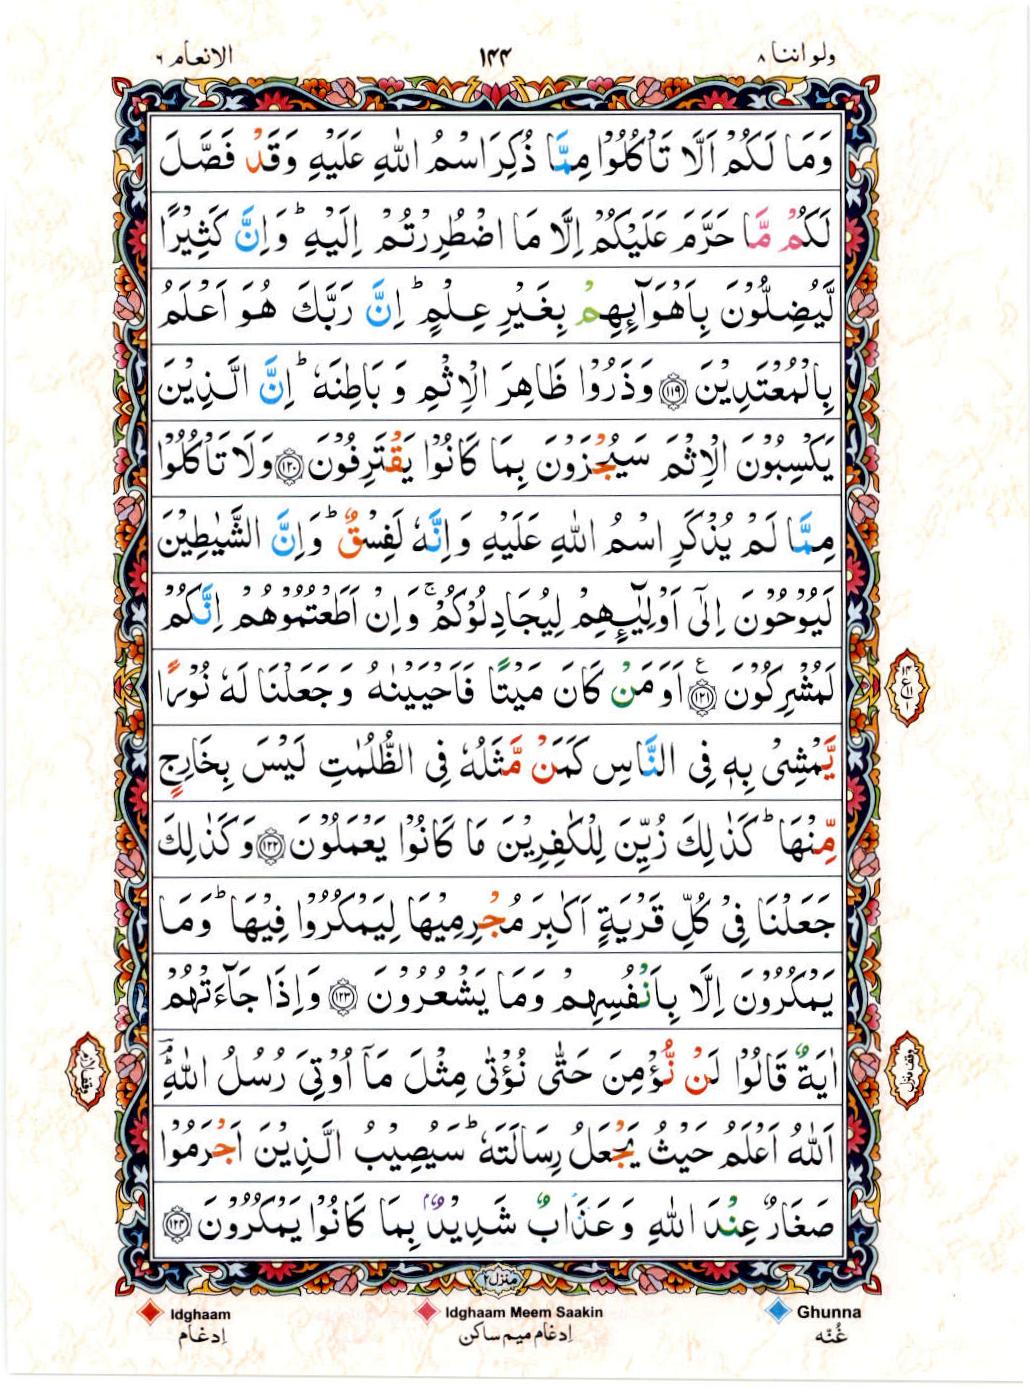 ولواننا ۸ ۱۴۴ الانعام ٦
وَمَا لَكُمْ اَلَّا تَاْكُلُوْا مِمَّا ذُكِرَ اسْمُ اللّٰهِ عَلَيْهِ وَقَدْ فَصَّلَ
لَكُمْ مَّا حَرَّمَ عَلَيْكُمْ اِلَّا مَا اضْطُرِرْتُمْ اِلَيْهِ ؕ وَاِنَّ كَثِيْرًا
لَّيُضِلُّوْنَ بِاَهْوَآىِٕهِمْ بِغَيْرِ عِلْمٍ ؕ اِنَّ رَبَّكَ هُوَ اَعْلَمُ
بِالْمُعْتَدِيْنَ ۝۱۱۹ وَذَرُوْا ظَاهِرَ الْاِثْمِ وَ بَاطِنَهٗ ؕ اِنَّ الَّذِيْنَ
يَكْسِبُوْنَ الْاِثْمَ سَيُجْزَوْنَ بِمَا كَانُوْا يَقْتَرِفُوْنَ ۝۱۲۰ وَلَا تَاْكُلُوْا
مِمَّا لَمْ يُذْكَرِ اسْمُ اللّٰهِ عَلَيْهِ وَاِنَّهٗ لَفِسْقٌ ؕ وَاِنَّ الشَّيٰطِيْنَ
لَيُوْحُوْنَ اِلٰٓى اَوْلِيٰٓـِٕهِمْ لِيُجَادِلُوْكُمْ ۚ وَاِنْ اَطَعْتُمُوْهُمْ اِنَّكُمْ
لَمُشْرِكُوْنَ ۝۱۲۱ ع اَوَمَنْ كَانَ مَيْتًا فَاَحْيَيْنٰهُ وَجَعَلْنَا لَهٗ نُوْرًا
يَّمْشِىْ بِهٖ فِى النَّاسِ كَمَنْ مَّثَلُهٗ فِى الظُّلُمٰتِ لَيْسَ بِخَارِجٍ
مِّنْهَا ؕ كَذٰلِكَ زُيِّنَ لِلْكٰفِرِيْنَ مَا كَانُوْا يَعْمَلُوْنَ ۝۱۲۲ وَكَذٰلِكَ
جَعَلْنَا فِىْ كُلِّ قَرْيَةٍ اَكٰبِرَ مُجْرِمِيْهَا لِيَمْكُرُوْا فِيْهَا ؕ وَمَا
يَمْكُرُوْنَ اِلَّا بِاَنْفُسِهِمْ وَمَا يَشْعُرُوْنَ ۝۱۲۳ وَاِذَا جَآءَتْهُمْ
اٰيَةٌ قَالُوْا لَنْ نُّؤْمِنَ حَتّٰى نُؤْتٰى مِثْلَ مَآ اُوْتِىَ رُسُلُ اللّٰهِ ؔۘؕ
اَللّٰهُ اَعْلَمُ حَيْثُ يَجْعَلُ رِسَالَتَهٗ ؕ سَيُصِيْبُ الَّذِيْنَ اَجْرَمُوْا
صَغَارٌ عِنْدَ اللّٰهِ وَعَذَابٌ شَدِيْدٌۢ بِمَا كَانُوْا يَمْكُرُوْنَ ۝۱۲۴
وقف منزل
وقف لازم
منزل ۲
Idghaam Idghaam Meem Saakin Ghunna
إدغام إدغام ميم ساكن غُنّه